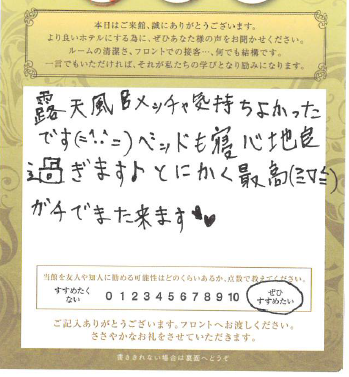 本日はご来館、誠にありがとうございます。
より良いホテルにする為に、ぜひあなた様の声をお聞かせください。
ルームの清潔さ、フロントでの接客…、何でも結構です。
一言でもいただければ、それが私たちの学びとなり励みになります。
露天風呂メッチャ気持ちよかった
です(=^:^=)ベッドも寝心地良
過ぎます♪とにかく最高(≧▽≦)
ガチでまた来ます♥♥
当館を友人や知人に勧める可能性はどのくらいあるか、点数で教えてください。
すすめたく
ない
0 1 2 3 4 5 6 7 8 9 10
ぜひ
すすめたい
ご記入ありがとうございます。フロントへお渡しください。
ささやかなお礼をさせていただきます。
書ききれない場合は裏面へどうぞ